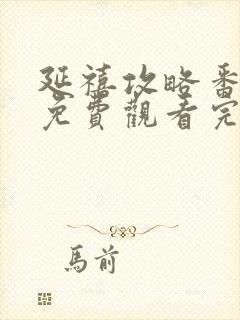 延禧攻略番
免費觀看完
馬前